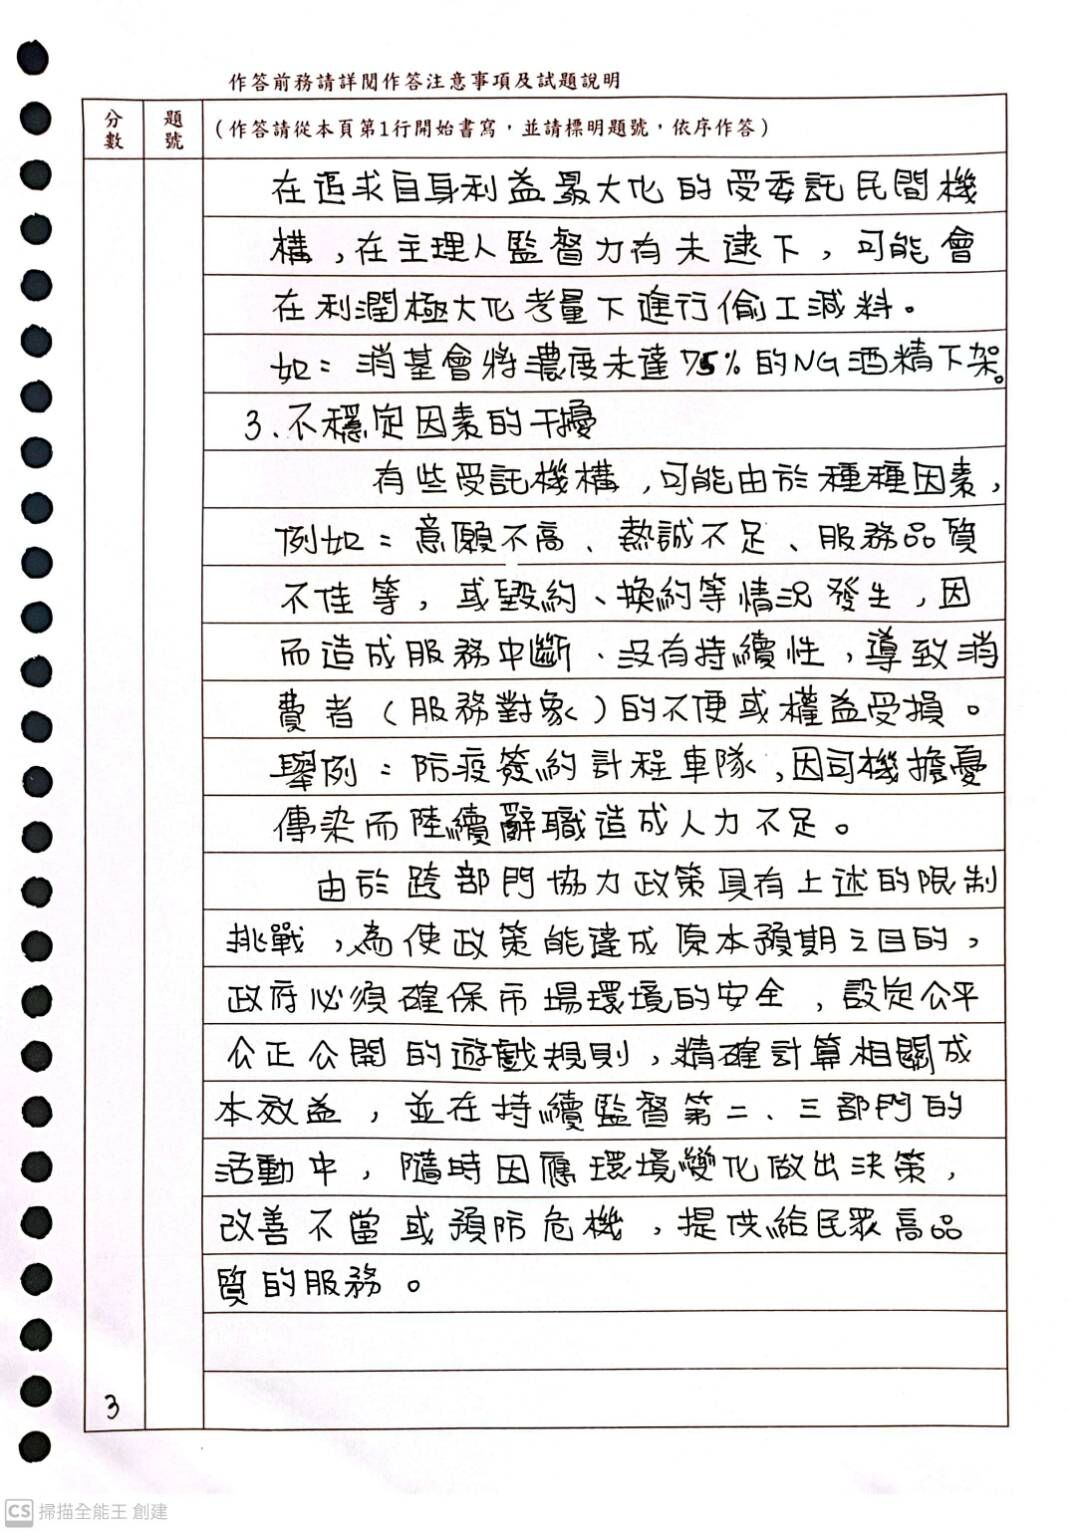 作答前務請詳閱作答注意事項及試題說明
分數
題號
(作答請從本頁第1行開始書寫，並請標明題號，依序作答)
在追求自身利益最大化的受委託民間機
構，在主理人監督力有未逮下，可能會
在利潤極大化考量下進行偷工減料。
如：消基會將濃度未達75%的NG酒精下架。
3.不穩定因素的干擾
有些受託機構，可能由於種種因素，
例如：意願不高、熱誠不足、服務品質
不佳等，或毀約、換約等情況發生，因
而造成服務中斷、沒有持續性，導致消
費者（服務對象）的不便或權益受損。
舉例：防疫簽約計程車隊，因司機擔憂
傳染而陸續辭職造成人力不足。
由於跨部門協力政策具有上述的限制
挑戰，為使政策能達成原本預期之目的，
政府必須確保市場環境的安全，設定公平
公正公開的遊戲規則，精確計算相關成
本效益，並在持續監督第二、三部門的
活動中，隨時因應環境變化做出決策，
改善不當或預防危機，提供給民眾高品
質的服務。
3
CS 掃描全能王 創建